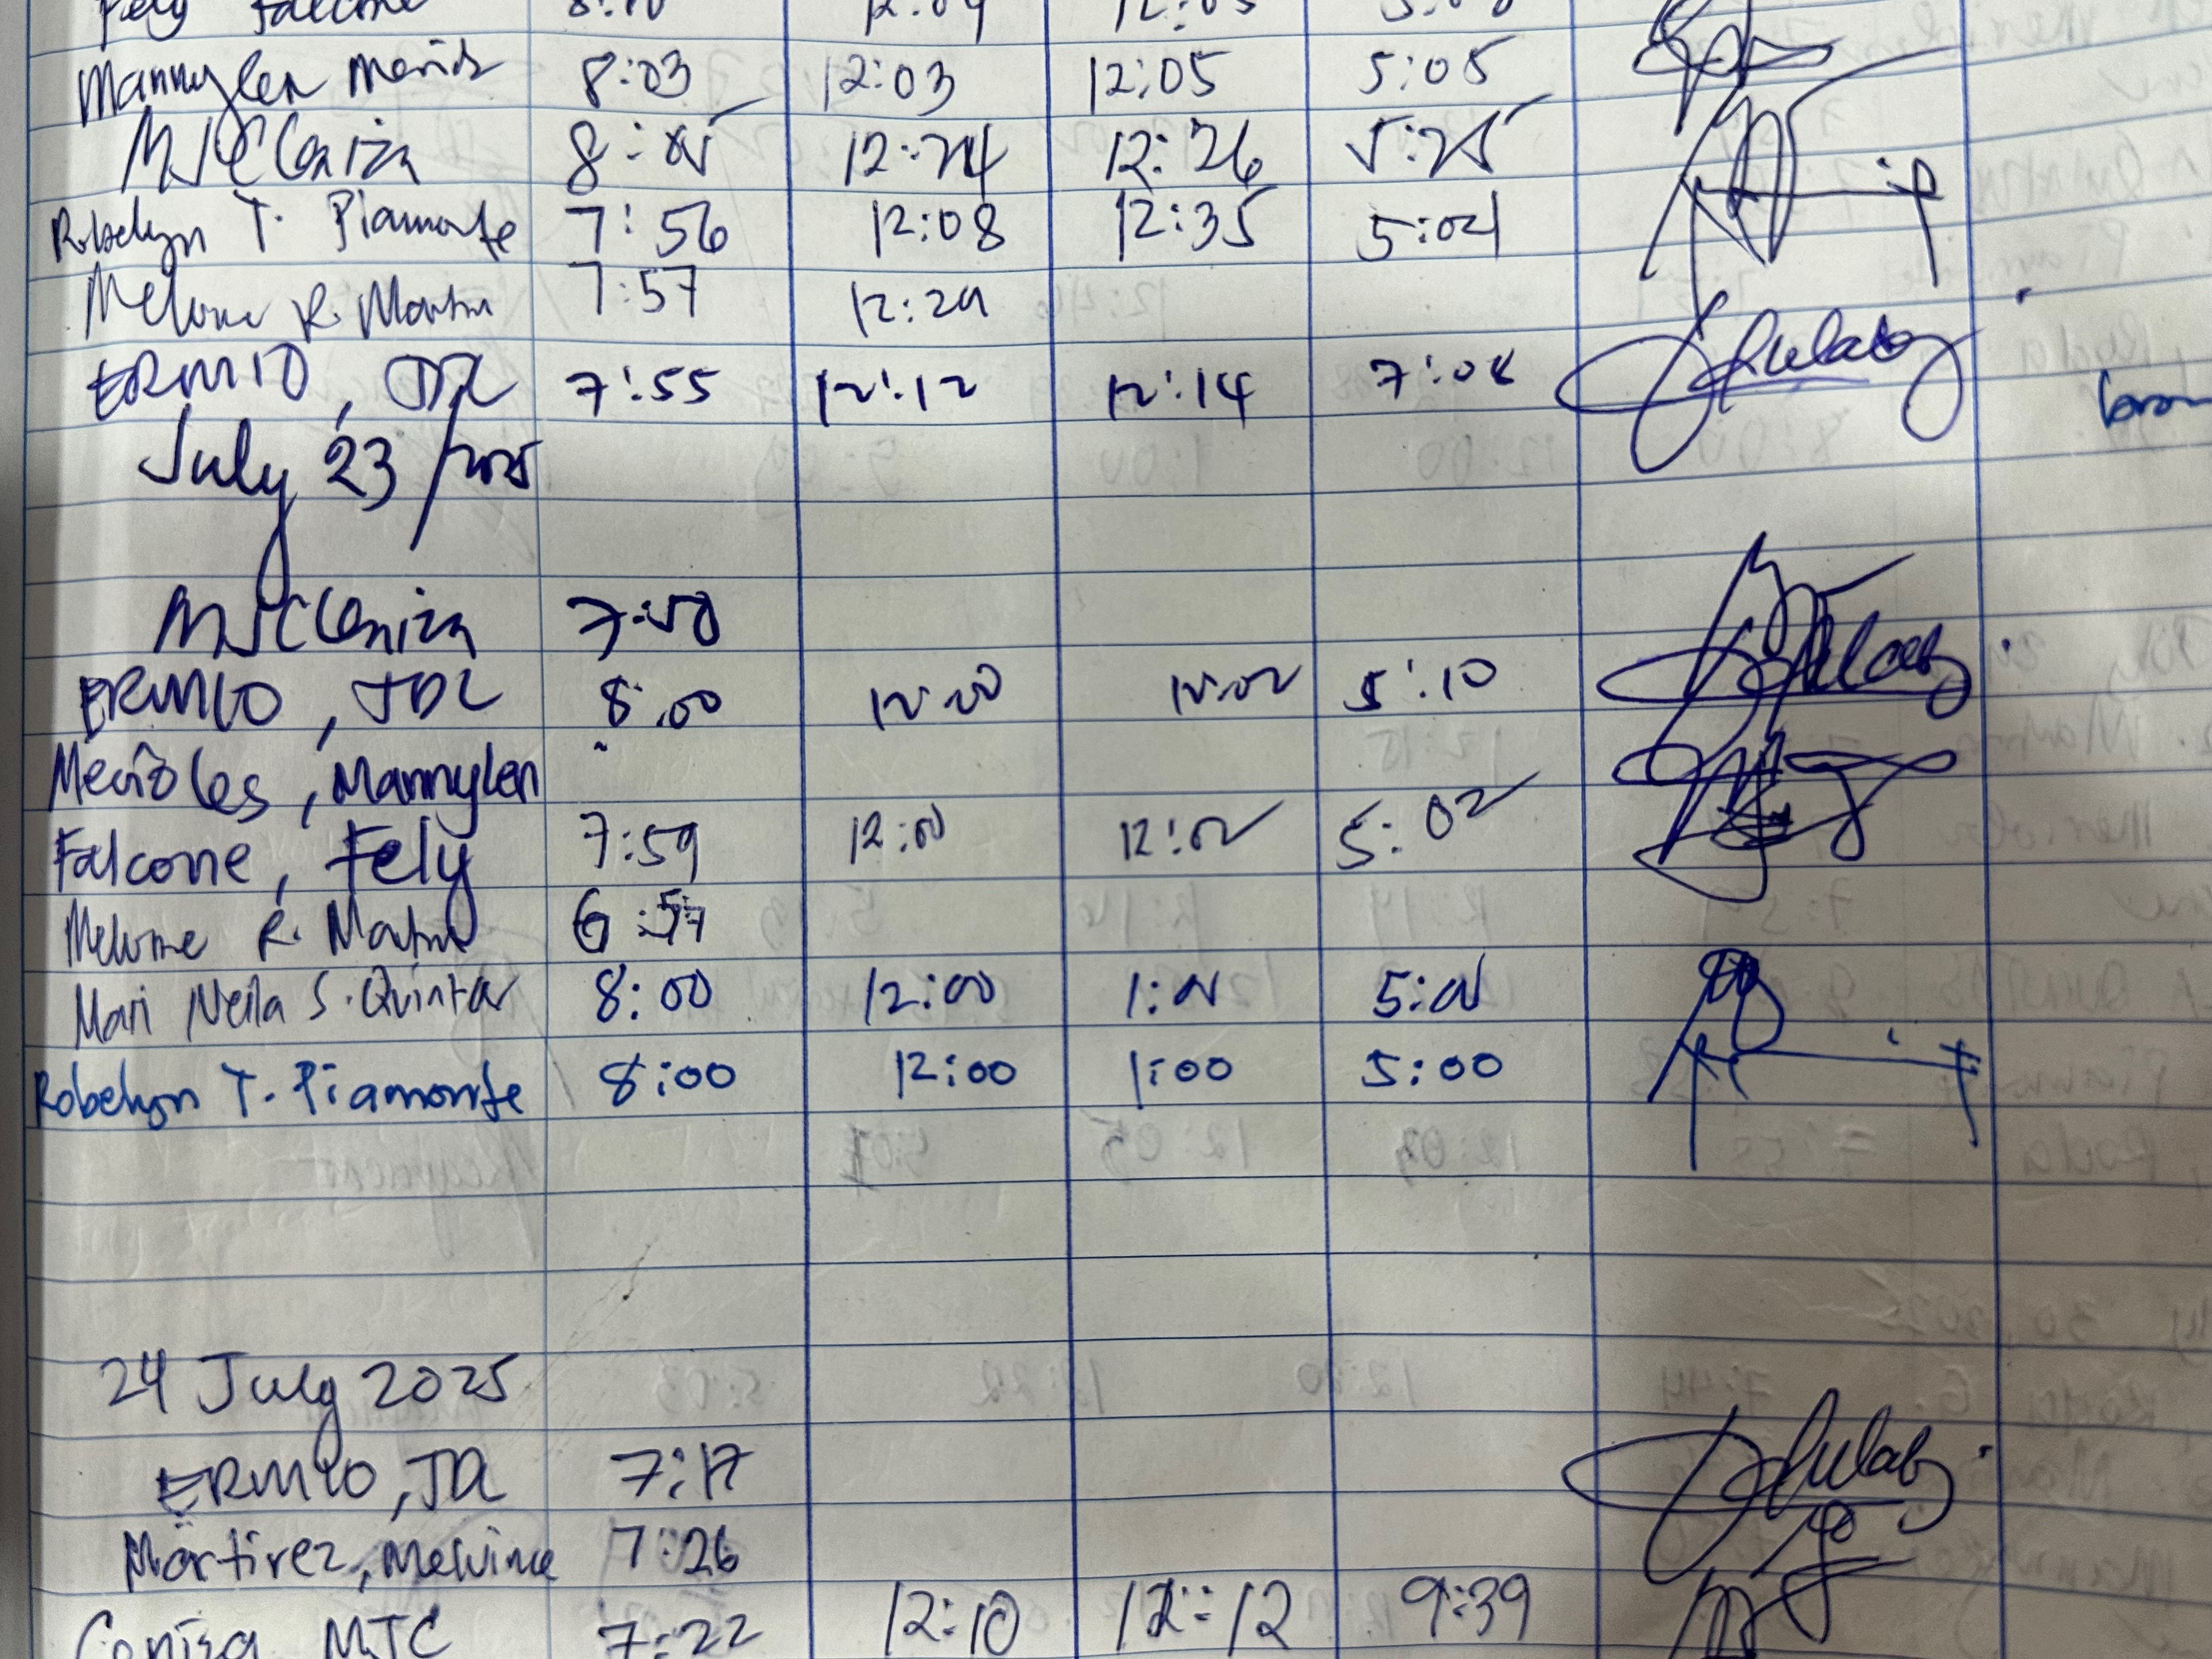 Fely Falcone
Mannylen 8:03 12:03 12:05 5:05
MJC Ceniza 12:24 12:26 5:25
Robelyn T. Piamonte 7:56 12:08 12:35 5:04
Melvine R. 7:57 12:29
ERMIO, 7:55 12:12 12:14 7:08
July 23 / 2025
MJC Ceniza 7:50
ERMIO, JDL 8:00 12:00 12:02 5:10
Merioles, Mannylen
Falcone, Fely 7:59 12:00 12:02 5:02
Melvine R. 6:57
Mari Neila S. Quintos 8:00 12:00 1:00 5:00
Robelyn T. Piamonte 8:00 12:00 1:00 5:00
24 July 2025
ERMIO, 7:17
Martirez, Melvine 7:26
Ceniza MJC 7:22 12:10 12:12 9:39